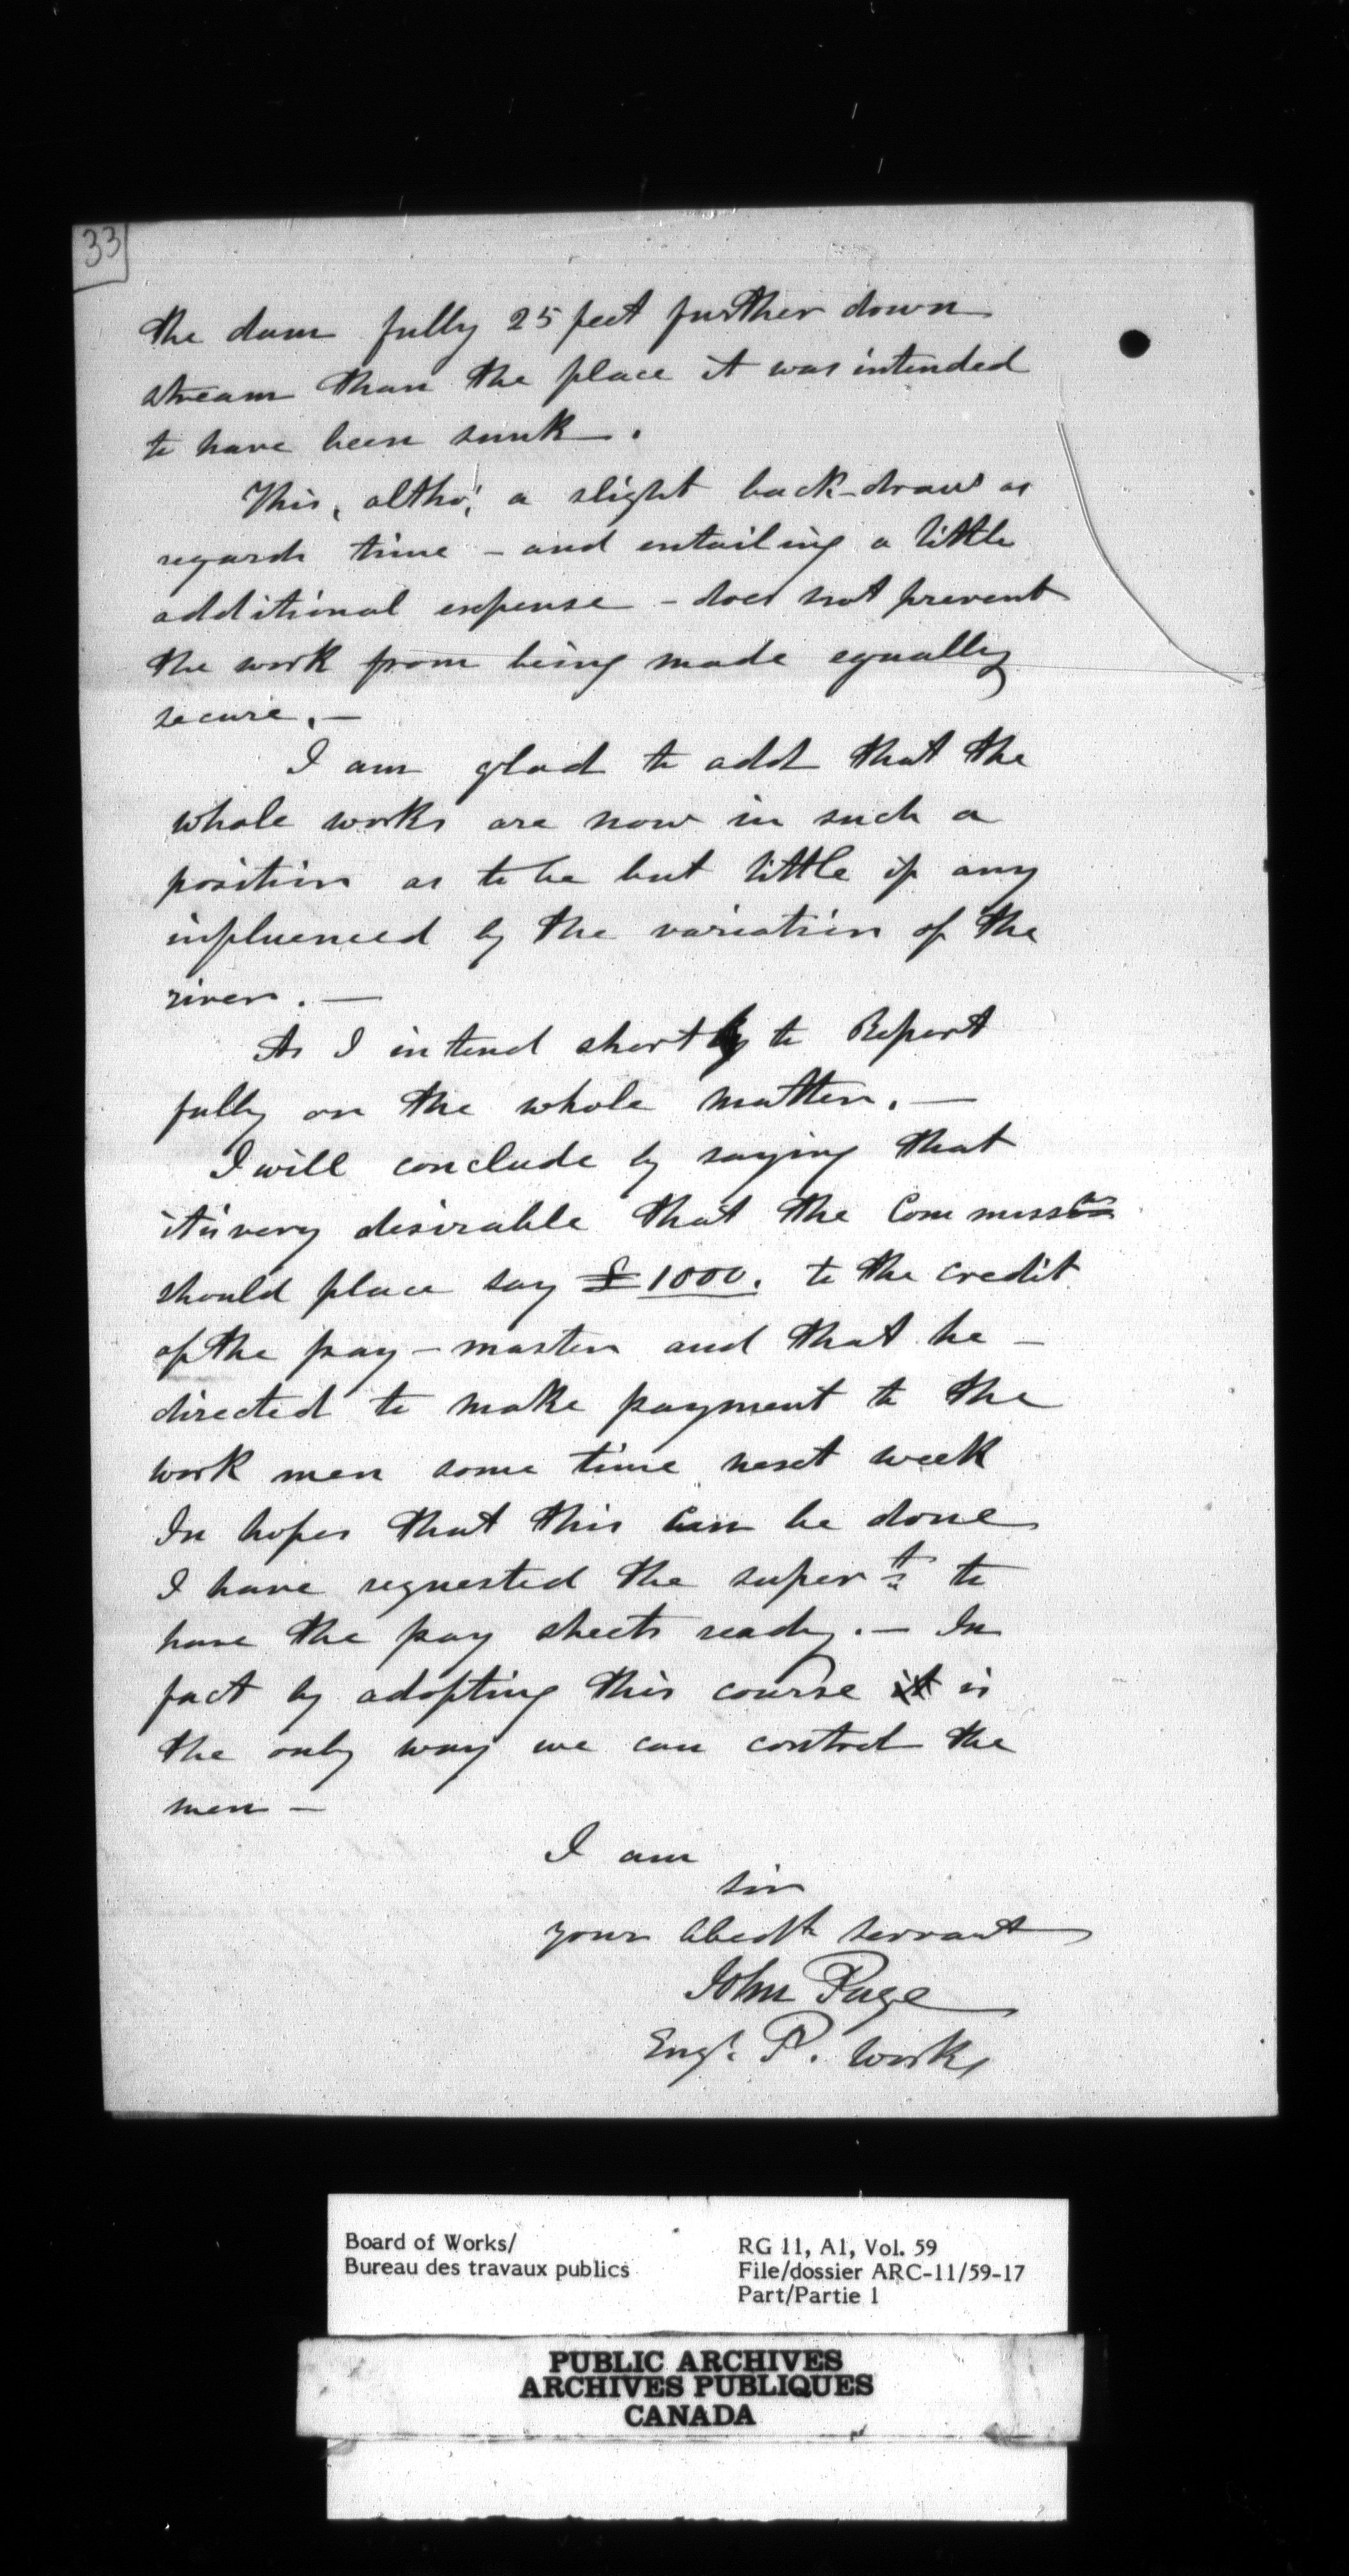 33
the dam fully 25 feet further down
stream than the place it was intended
to have been sunk.
This, altho' a slight back-draw as
regards time - and entailing a little
additional expense - does not prevent
the work from being made equally
secure. —
I am glad to add that the
whole works are now in such a
position as to be but little if any
influenced by the variation of the
river. —
As I intend shortly to Report
fully on the whole matter. —
I will conclude by saying that
it is very desirable that the Commissrs
should place say £1000. to the credit
of the pay-master and that he —
directed to make payment to the
work men some time next week
In hopes that this can be done
I have requested the supert to
have the pay sheets ready. — In
fact by adopting this course it is
the only way we can control the
men —
I am
sir
your obedt servant
John Page
Engr. P. Works
Board of Works/
Bureau des travaux publics
RG 11, A1, Vol. 59
File/dossier ARC-11/59-17
Part/Partie 1
PUBLIC ARCHIVES
ARCHIVES PUBLIQUES
CANADA